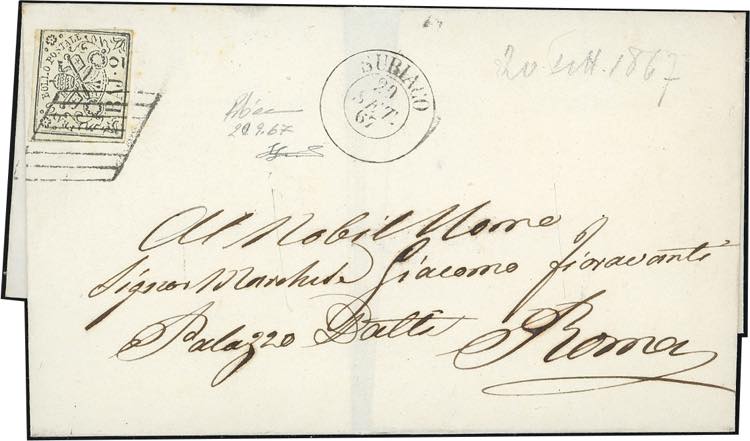 BOLLO POSTALE
BAJ. 2
SUBIACO
20
SET.
67
20 Sett. 1867
20.9.67
Al Nobil Uomo
Signor Marchese Giacomo Fioravanti
Palazzo Datti
Roma